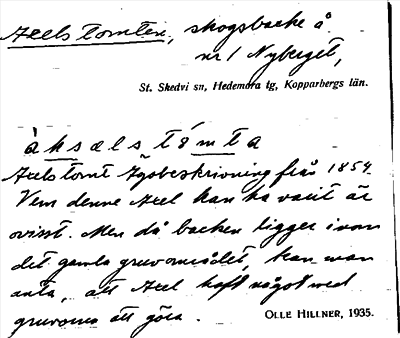 Axelstomten, skogsbacke å
nr 1 Nyberget,
St. Skedvi sn, Hedemora tg, Kopparbergs län.
àksəlstómta
Axelstomt Ägobeskrivning från 1854.
Vem denne Axel kan ha varit är
ovisst. Men då backen ligger inom
det gamla gruvområdet, kan man
anta, att Axel haft något med
gruvorna att göra.
OLLE HILLNER, 1935.